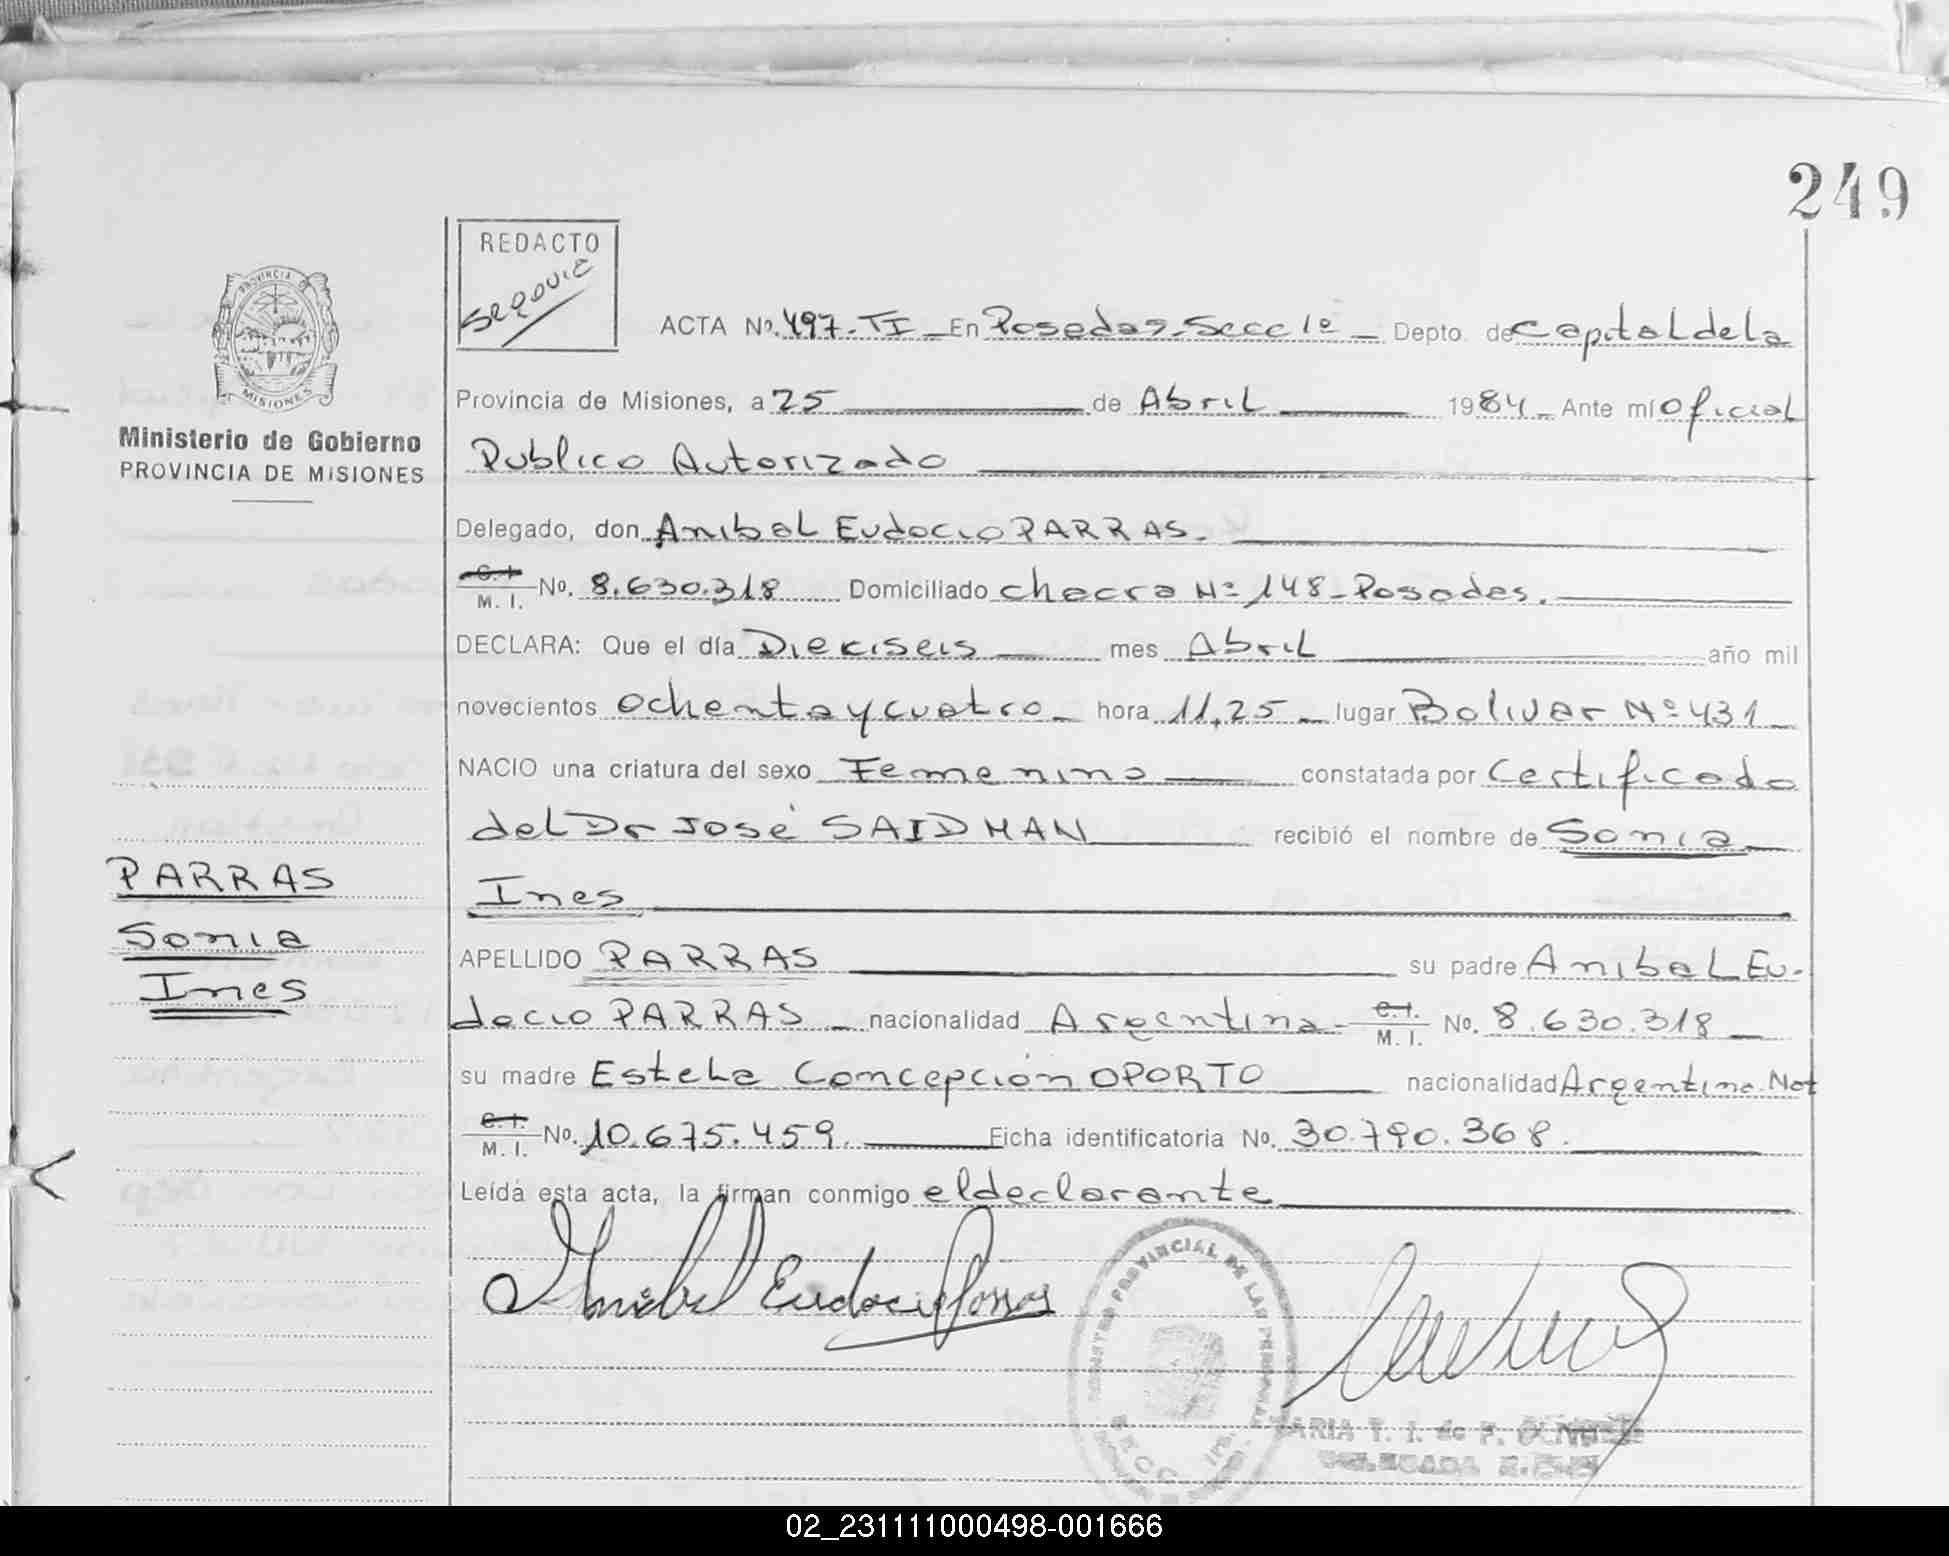 249
REDACTO
Segovia
PROVINCIA
MISIONES
Ministerio de Gobierno
PROVINCIA DE MISIONES
ACTA No. 497-TI- En Posadas-Secc 1º- Depto. de Capital de la
Provincia de Misiones, a 25 de Abril 1984- Ante mí Oficial
Publico Autorizado
Delegado, don Anibal Eudocio PARRAS.
C.I. M. I. No. 8.630.318 Domiciliado Chacra Nº 148-Posadas.
DECLARA: Que el día Dieciseis mes Abril año mil
novecientos Ochenta y cuatro- hora 11,25- lugar Bolivar Nº 431-
NACIO una criatura del sexo Femenino constatada por Certificado
del Dr José SAIDMAN recibió el nombre de Sonia
Ines
APELLIDO PARRAS su padre Anibal Eu-
docio PARRAS- nacionalidad Argentina- C.I. M. I. No. 8.630.318
su madre Estela Concepción OPORTO nacionalidad Argentina. Nat
C.I. M. I. No. 10.675.459. Ficha identificatoria No. 30.790.368.
Leída esta acta, la firman conmigo el declarante
PARRAS
Sonia
Ines
Anibal Eudocio Parras
REGISTRO PROVINCIAL DE LAS PERSONAS
MARIA T. I. de P.
DELEGADA
02_231111000498-001666